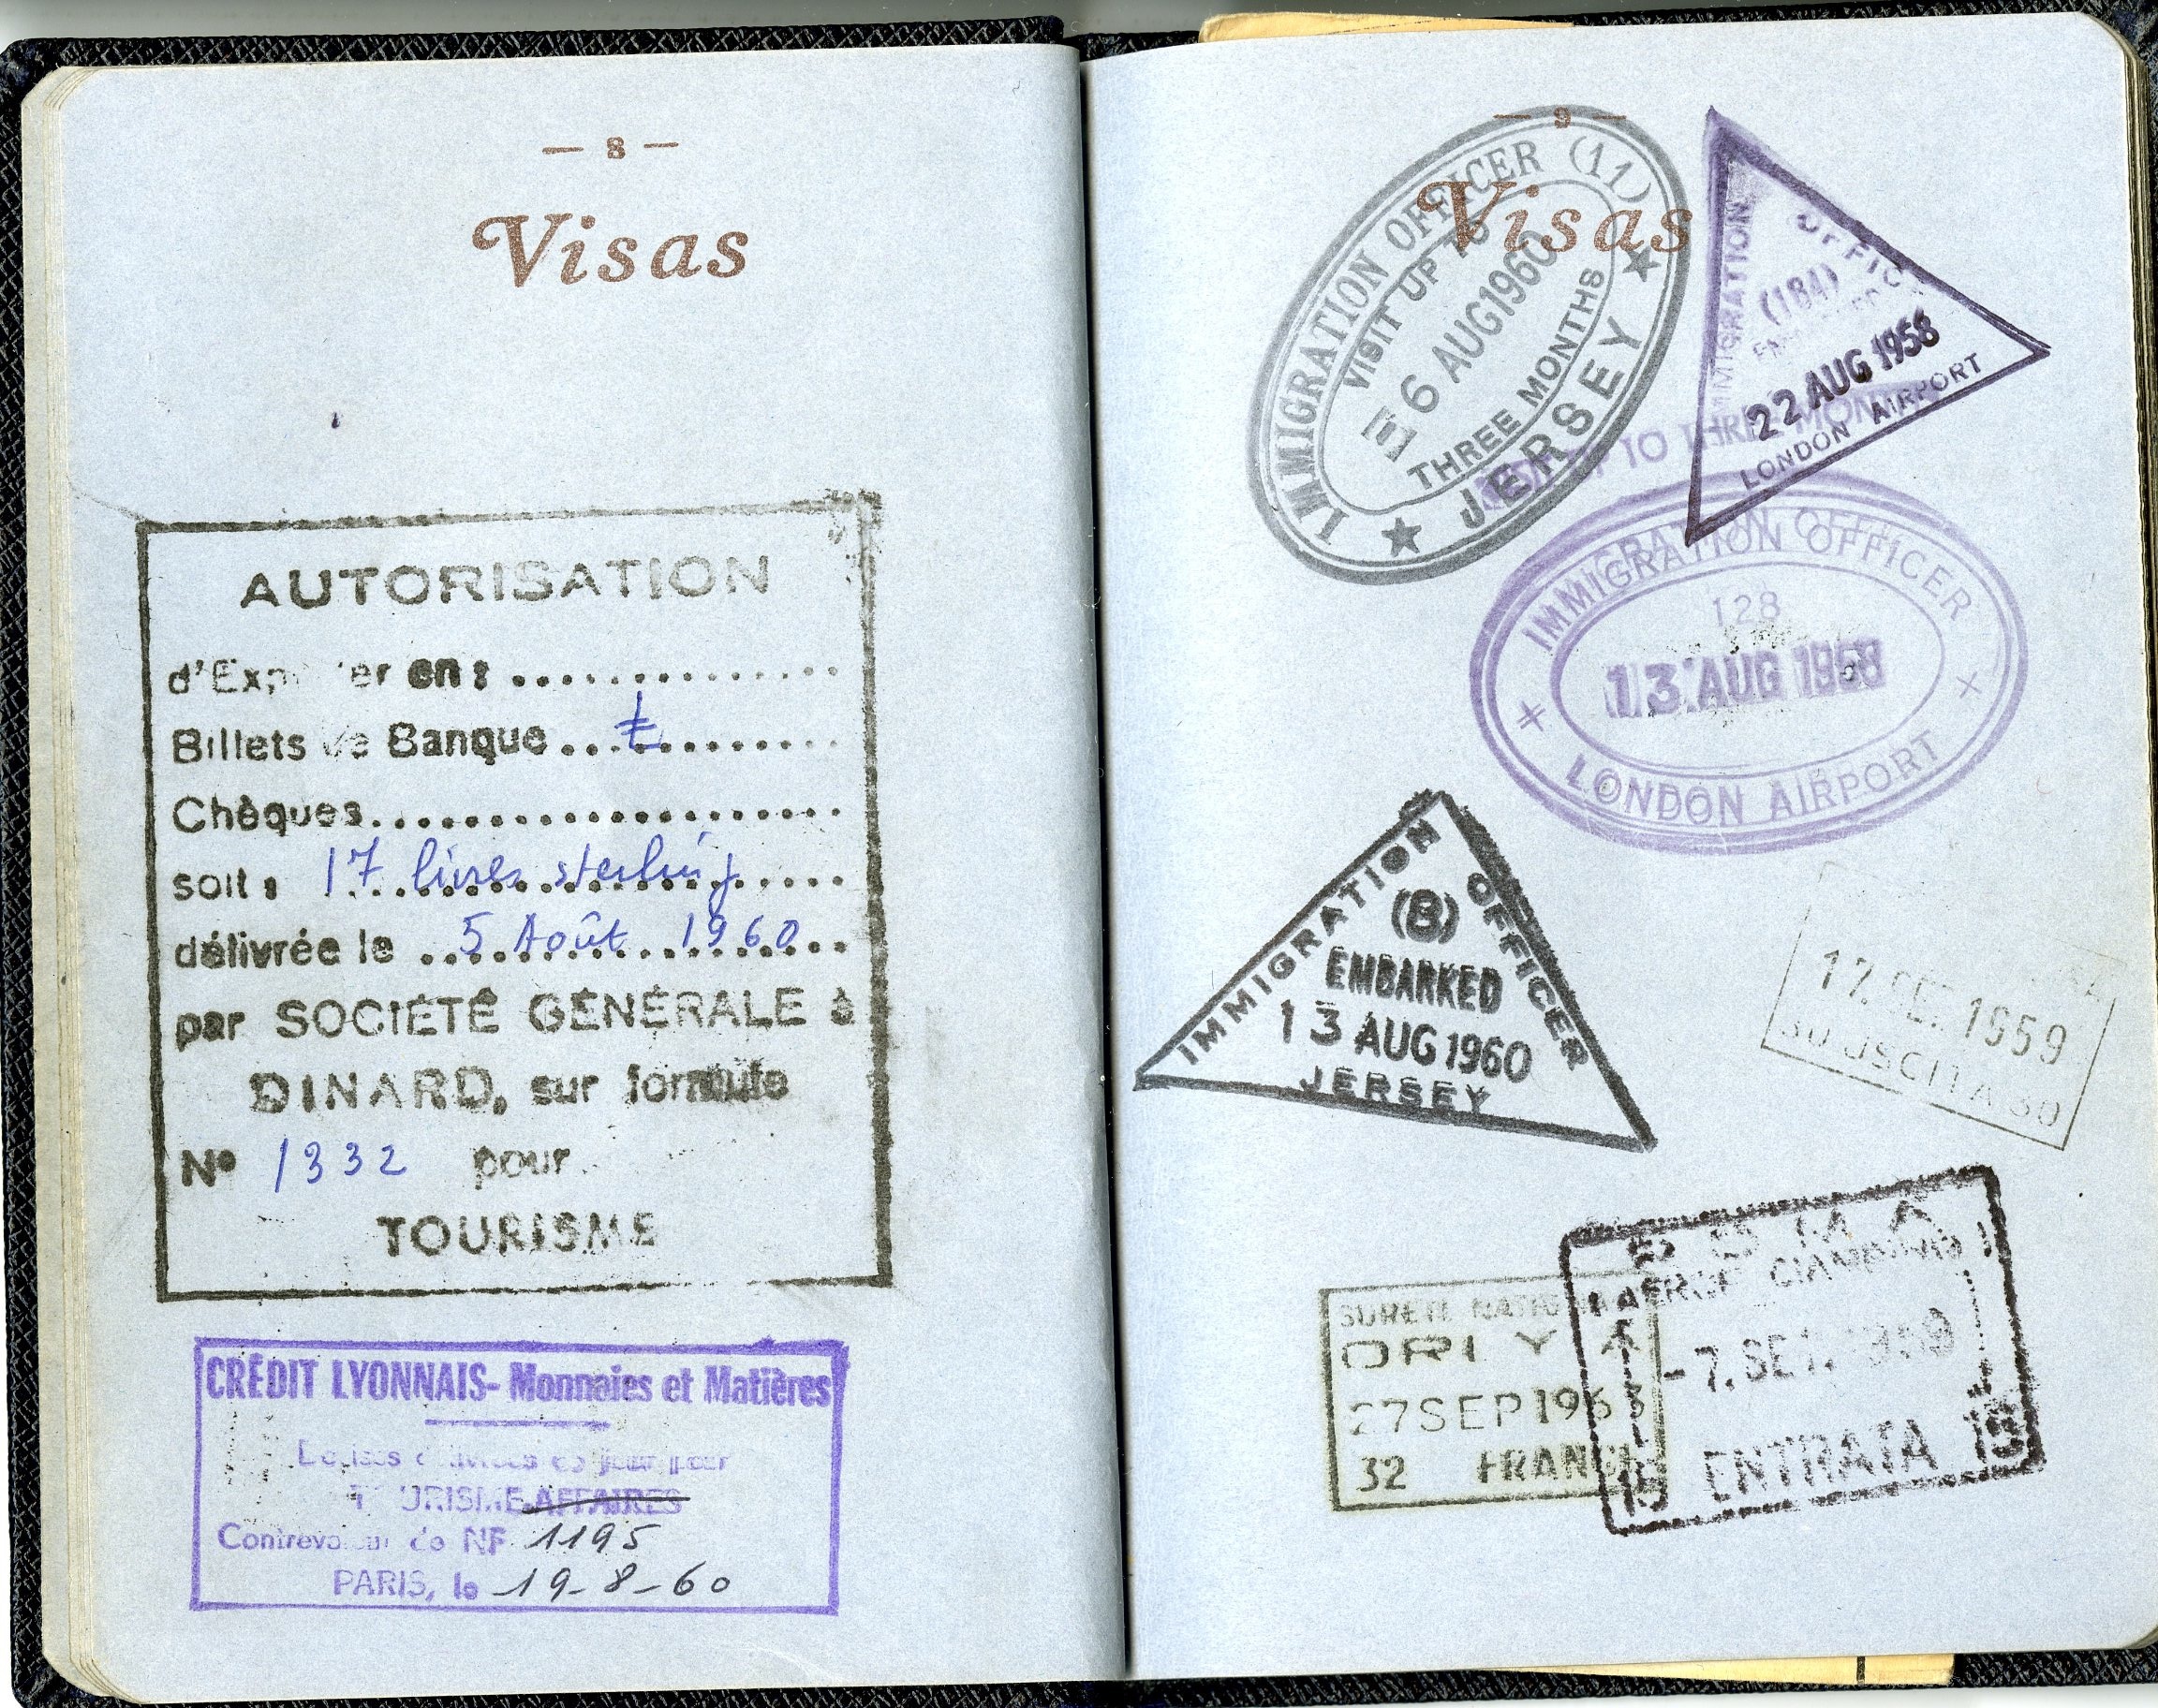 — 8 —
Visas
AUTORISATION
en :
Billets de Banque ... £
Chèques
soit : 17 livres sterling
délivrée le 5 Août 1960
par SOCIÉTÉ GÉNÉRALE à
DINARD, sur formule
N° 1332 pour
TOURISME
CRÉDIT LYONNAIS- Monnaies et Matières
TOURISME-AFFAIRES
Contrevaleur de NF 1195
PARIS, le 19-8-60
— 9 —
Visas
IMMIGRATION OFFICER (11)
VISIT UP TO
6 AUG 1960
THREE MONTHS
★ JERSEY ★
IMMIGRATION OFFICER
(184)
22 AUG 1958
LONDON AIRPORT
TO THREE MONTHS
IMMIGRATION OFFICER
128
13 AUG 1958
LONDON AIRPORT
IMMIGRATION OFFICER
(8)
EMBARKED
13 AUG 1960
JERSEY
17. SET. 1959
30 USCITA 30
ROMA
AEROP. CIAMPINO
-7. SET. 1959
ENTRATA
SURETE NATIONALE
ORLY A
27 SEP 1963
32 FRANCE